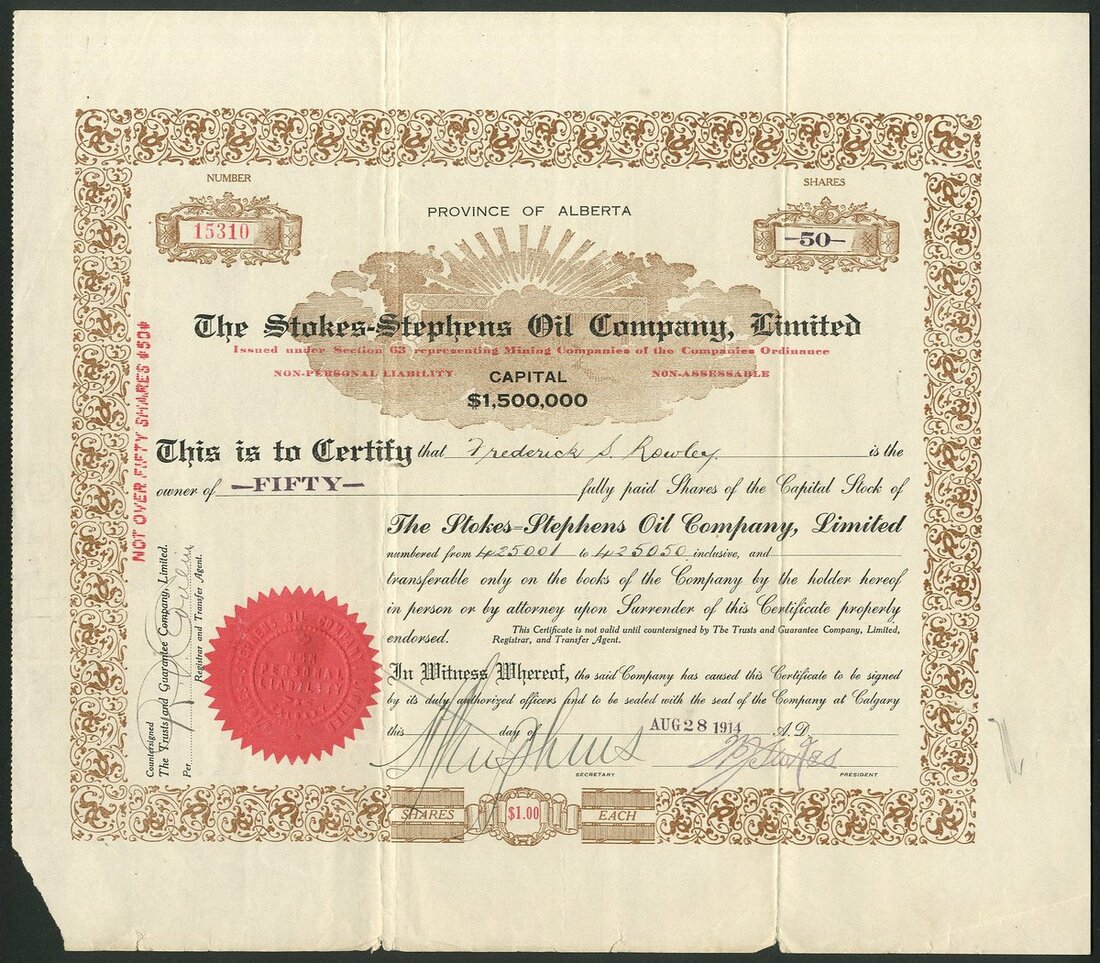 NUMBER
SHARES
15310
PROVINCE OF ALBERTA
—50—
The Stokes-Stephens Oil Company, Limited
Issued under Section 63 representing Mining Companies of the Companies Ordinance
NON-PERSONAL LIABILITY
CAPITAL
NON-ASSESSABLE
$1,500,000
NOT OVER FIFTY SHARES $50$
This is to Certify that Frederick S. Rowley is the
owner of —FIFTY— fully paid Shares of the Capital Stock of
The Stokes=Stephens Oil Company, Limited
numbered from 425001 to 425050 inclusive, and
transferable only on the books of the Company by the holder hereof
in person or by attorney upon Surrender of this Certificate properly
endorsed. This Certificate is not valid until countersigned by The Trusts and Guarantee Company, Limited,
Registrar, and Transfer Agent.
In Witness Whereof, the said Company has caused this Certificate to be signed
by its duly authorized officers and to be sealed with the seal of the Company at Calgary
this day of AUG 28 1914 A.D.
SECRETARY
PRESIDENT
Countersigned
The Trusts and Guarantee Company, Limited.
Per
Registrar and Transfer Agent.
PERSONAL
LIABILITY
SHARES $1.00 EACH